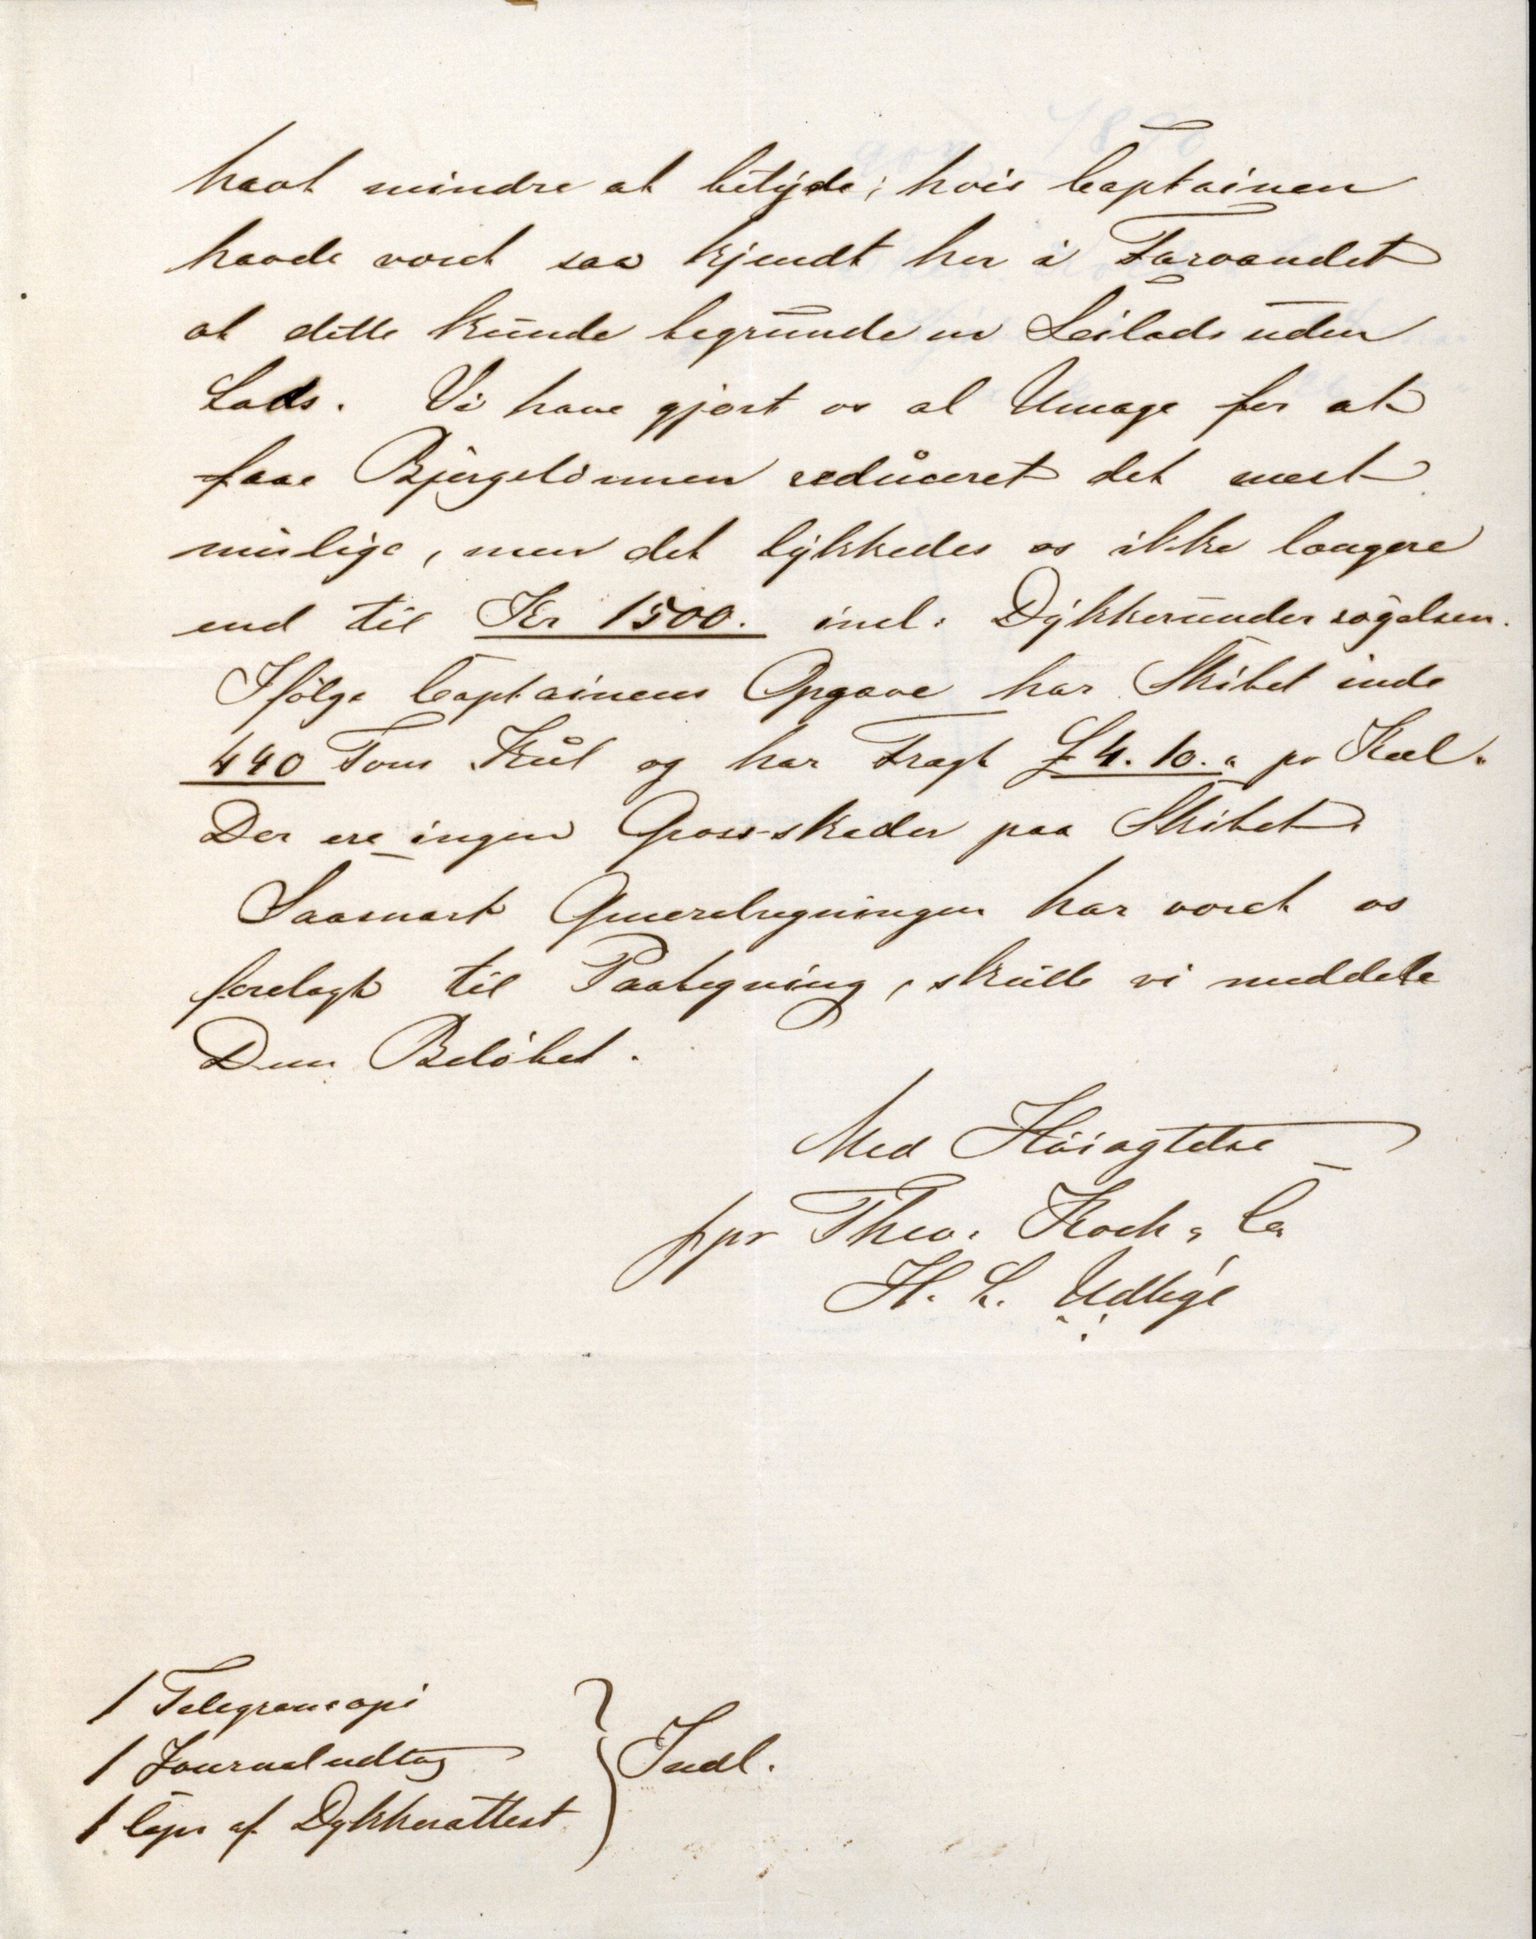 havt mindre at betyde, hvis Captainen
havde været saa kjendt her i Farvandet
at dette kunde begrunde en Seilads uden
Lods. Vi have gjort os al Umage for at
faae Bjergelönnen reduceret det mest
mulige, men det lykkedes os ikke længere
end til Kr 1500. incl. Dykkerundersøgelsen.
Ifölge Captainens Opgave har Skibet inde
440 Tons Kul og har Fragt £ 4. 10. " pr Keel.
Der ere ingen Gross-skader paa Skibet.
Saasnart Generalregningen har været os
forelagt til Paategning, skulle vi meddele
Dem Belöbet.
Med Höiagtelse
ppr Theo. Koch & Co
H. L.
1 Telegramcopi
1 Journaludtog
1 Copi af Dykkerattest
Indl.